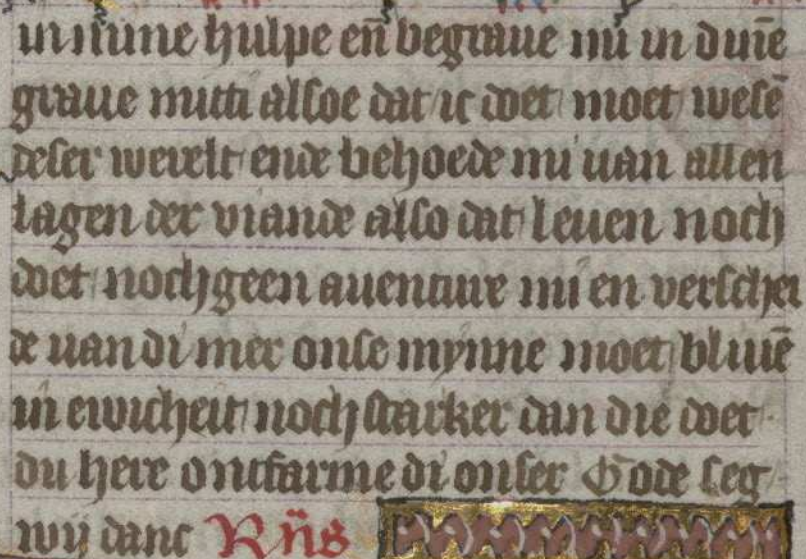 in mine hulpe en̄ begraue mi in dinē
graue mitti alsoe dat ic doet moet wesē
deser werelt ende behoede mi uan allen
lagen der viande also dat leuen noch
doet noch geen auenture mi en verschei
de uan di mer onse mynne moet bliuē
in ewicheit noch starker dan die doet
du here ontfarme di onser Gode seg
wij danc Rn̄s